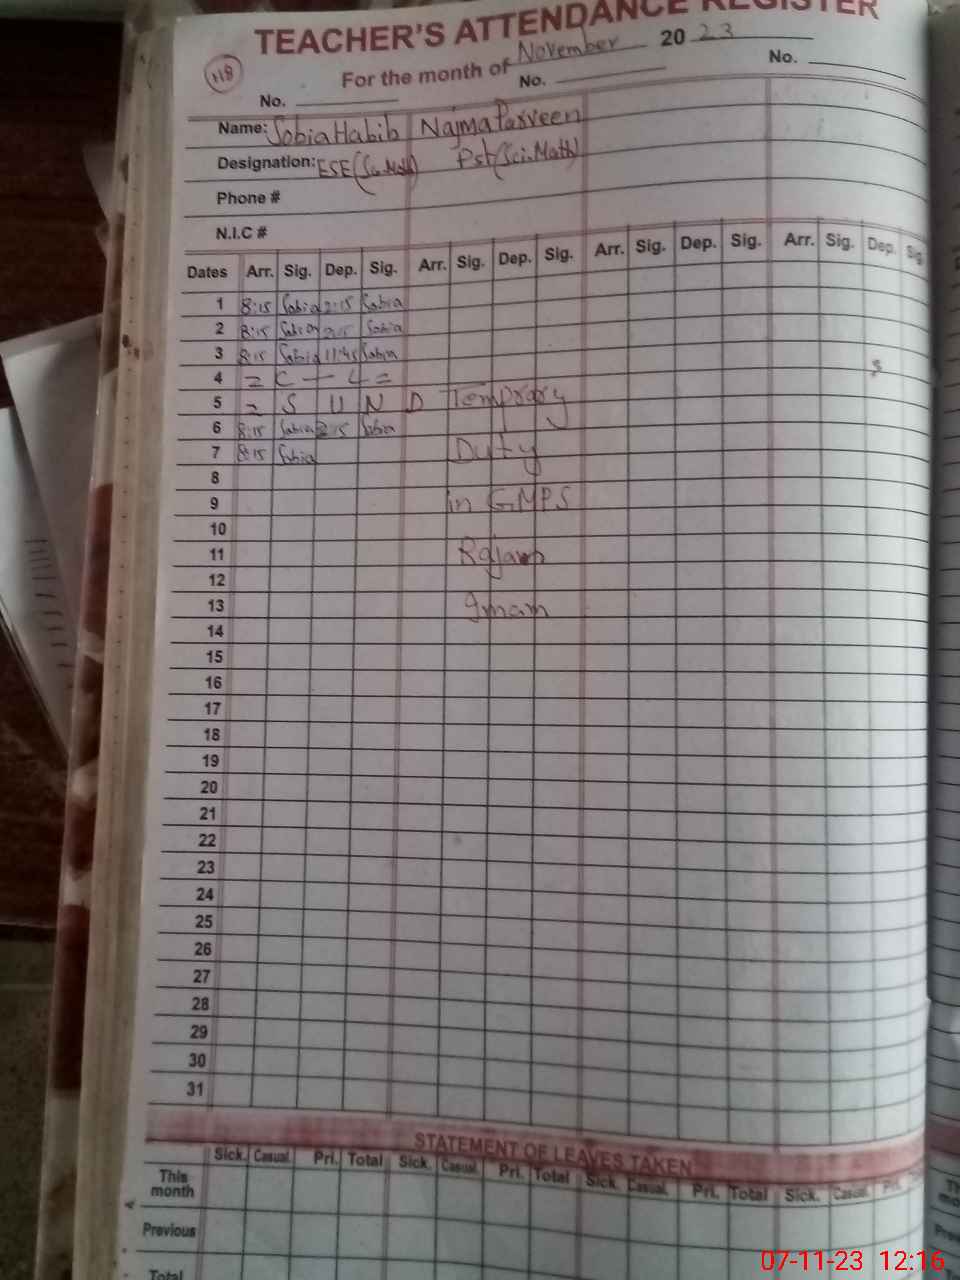 TEACHER'S ATTENDANCE REGISTER
118
For the month of November 20 23
No. No. No.
Name: Sobia Habib Najma Parveen
Designation: ESE (Sci.Math) Pst (Sci.Math)
Phone #
N.I.C #
Dates Arr. Sig. Dep. Sig. Arr. Sig. Dep. Sig. Arr. Sig. Dep. Sig. Arr. Sig. Dep. Sig
1 8:15 Sobia 2:15 Sobia
2 8:15 Sobia 2:15 Sobia
3 8:15 Sobia 11:45 Sobia
4 = C - L =
5 = S U N D Temprory
6 8:15 Sobia 2:15 Sobia
7 8:15 Sobia Duty
8
9 in GMPS
10
11 Rajan
12
13 Imam
14
15
16
17
18
19
20
21
22
23
24
25
26
27
28
29
30
31
STATEMENT OF LEAVES TAKEN
Sick. Casual. Pri. Total Sick. Casual. Pri. Total Sick. Casual. Pri. Total Sick. Casual. Pri.
This month
Previous
Total
07-11-23 12:16